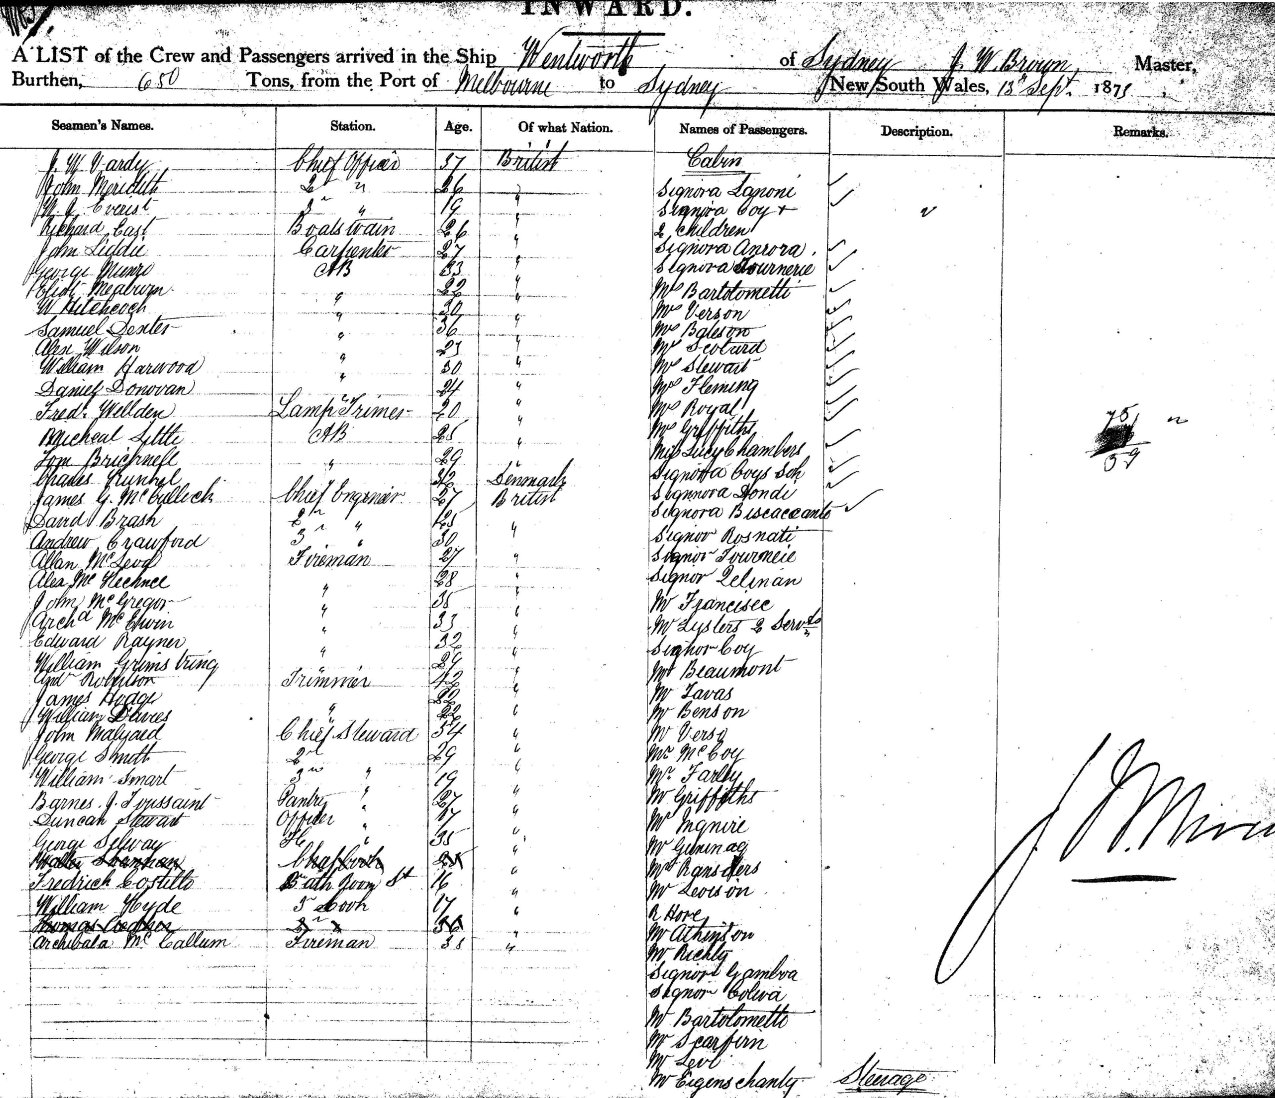 INWARD.
A LIST of the Crew and Passengers arrived in the Ship Wentworth of Sydney J. W. Brown Master,
Burthen, 650 Tons, from the Port of Melbourne to Sydney New South Wales, 13th Sept. 1875
Seamen's Names. Station. Age. Of what Nation. Names of Passengers. Description. Remarks.
J. W. Vardy Chief Officer 37 British Cabin
John Meridith 2nd " 26 " Signora Zanoni
W. J. Everist 3rd " 19 " Signora Coy +
Richard East Boatstwain 26 " 2 children
John Liddie Carpenter 27 " Signora Aurora
George Munro AB 33 " Signora Tournerie
Eliot Meaburn 22 " Mrs Bartolometti
W Hitchcock " 30 " Mrs Verson
Samuel Dexter " 36 " Mrs Bateson
Alex Wilson " 23 " Mr Scotard
William Harwood " 30 " Mrs Stewart
Daniel Donovan " 24 " Mrs Fleming
Fred. Wellden Lamp Trimer 20 " Mrs Royal
Micheal Little AB 25 " Mrs Griffiths
Tom Bricknell " 29 " Miss Lucy Chambers
Charles Krunkel 32 Denmark Signora Coys Soh
James G. McCulloch Chief Engenier 27 British Signnora Dondi
David Brash 2nd " 25 Signora Biscaccante
Andrew Crawford 3rd " 30 " Signor Rosnati
Allan McLeod Fireman 27 " Signor Tourneie
Alex McKechnee 28 " Signor Zelman
John McGregor " 35 " Mr Francisec
Archd McEwin " 33 " Mr Lysters 2 Servts
Edward Rayner " 32 " Signor Coy
William Grimstring " 29 " Mr Beaumont
Andw Robertson Trimmer 42 " Mr Favas
James Hodge 22 " Mr Benson
William Davies " 22 " Mr Verso
John Malyard Chief Steward 34 " Mr McCoy
George Smith 2nd 29 " Mr Farley
William Smart 3rd " 19 Mr Griffiths
Barnes. J. Toussaint Pantry " 27 " Mr Ingnire
Duncan Stewart Officer " 17 "
George Selway " 35 " Mr
Chief Cook 25 " Mr Ransders
Fredrick Costillo Bath Room St 16 " Mr Levison
William Hyde 3rd Cook 17 " R Hore
Thomas 2nd " Mr Atkinson
Archibald McCallum Fireman 35 " Mr Richty
Signor Gamboa
Signor Coliva
Mr Bartolometti
Mr Scarfirn
Mr Levi
Mr Eigenschanty Steerage
75
59